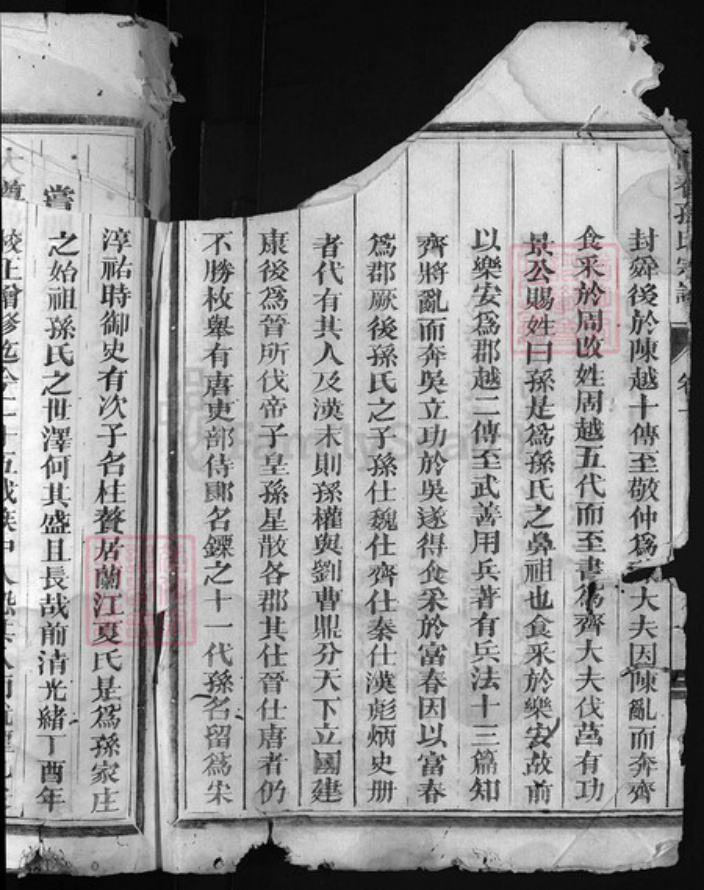 富春孫氏宗譜
卷一
封舜後於陳越十傳至敬仲爲大夫因陳亂而奔齊
食采於周改姓周越五代而至書爲齊大夫伐莒有功
景公賜姓曰孫是爲孫氏之鼻祖也食采於樂安故前
以樂安爲郡越二傳至武善用兵著有兵法十三篇知
齊將亂而奔吳立功於吳遂得食采於富春因以富春
爲郡厥後孫氏之子孫仕魏仕齊仕秦仕漢彪炳史册
者代有其人及漢末則孫權與劉曹鼎分天下立國建
康後爲晉所伐帝子皇孫星散各郡其仕晉仕唐者仍
不勝枚舉有唐吏部侍郞名鏢之十一代孫名留爲宋
淳祐時御史有次子名桂贅居蘭江夏氏是爲孫家庄
之始祖孫氏之世澤何其盛且長哉前清光緒丁酉年
嘗
校正增修迄今二十五載族中人
FamilySearch